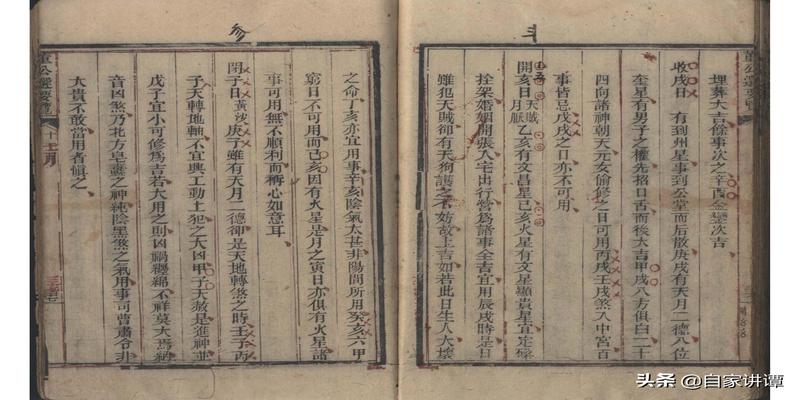 埋葬大吉餘事次之辛酉金鑾次吉
收戌日　有到州星事到公堂而后散庚戌有天月二德八位
奎星有男子之權先招口舌而後大吉甲戌八方俱白二十
四向諸神朝天元女偷修之日可用丙戌壬戌煞入中宮百
事皆忌戊戌之日亦不可用
開亥日天賊月厭乙亥有文昌星己亥火星有文星顯貴星宜定磉
拴架婚姻開張入宅出行營爲諸事全吉宜用辰戌時是日
雖犯天賊卻有天狗護之不妨故上吉如若此日生人大壞
之命丁亥亦宜用事辛亥陰氣太甚非陽間所用癸亥六甲
窮日不可用而己亥因有火星是月之寅日亦俱有火星諸
事可用無不順利而稱心如意耳
閉子日黃沙庚子雖有天月二德卻是天地轉煞之時壬子丙
子天轉地軸不宜興工動土犯之大凶甲子天赦是進神並
戊子宜小可修爲吉若大用之則凶禍纏綿不祥莫大焉納
音凶煞乃北方皂纛之神純陰黑煞之氣用事司曹肅令非
大貴不敢當用者慎之
董公選要覽
十二月
董公選要覽
头条 @自家讲谭